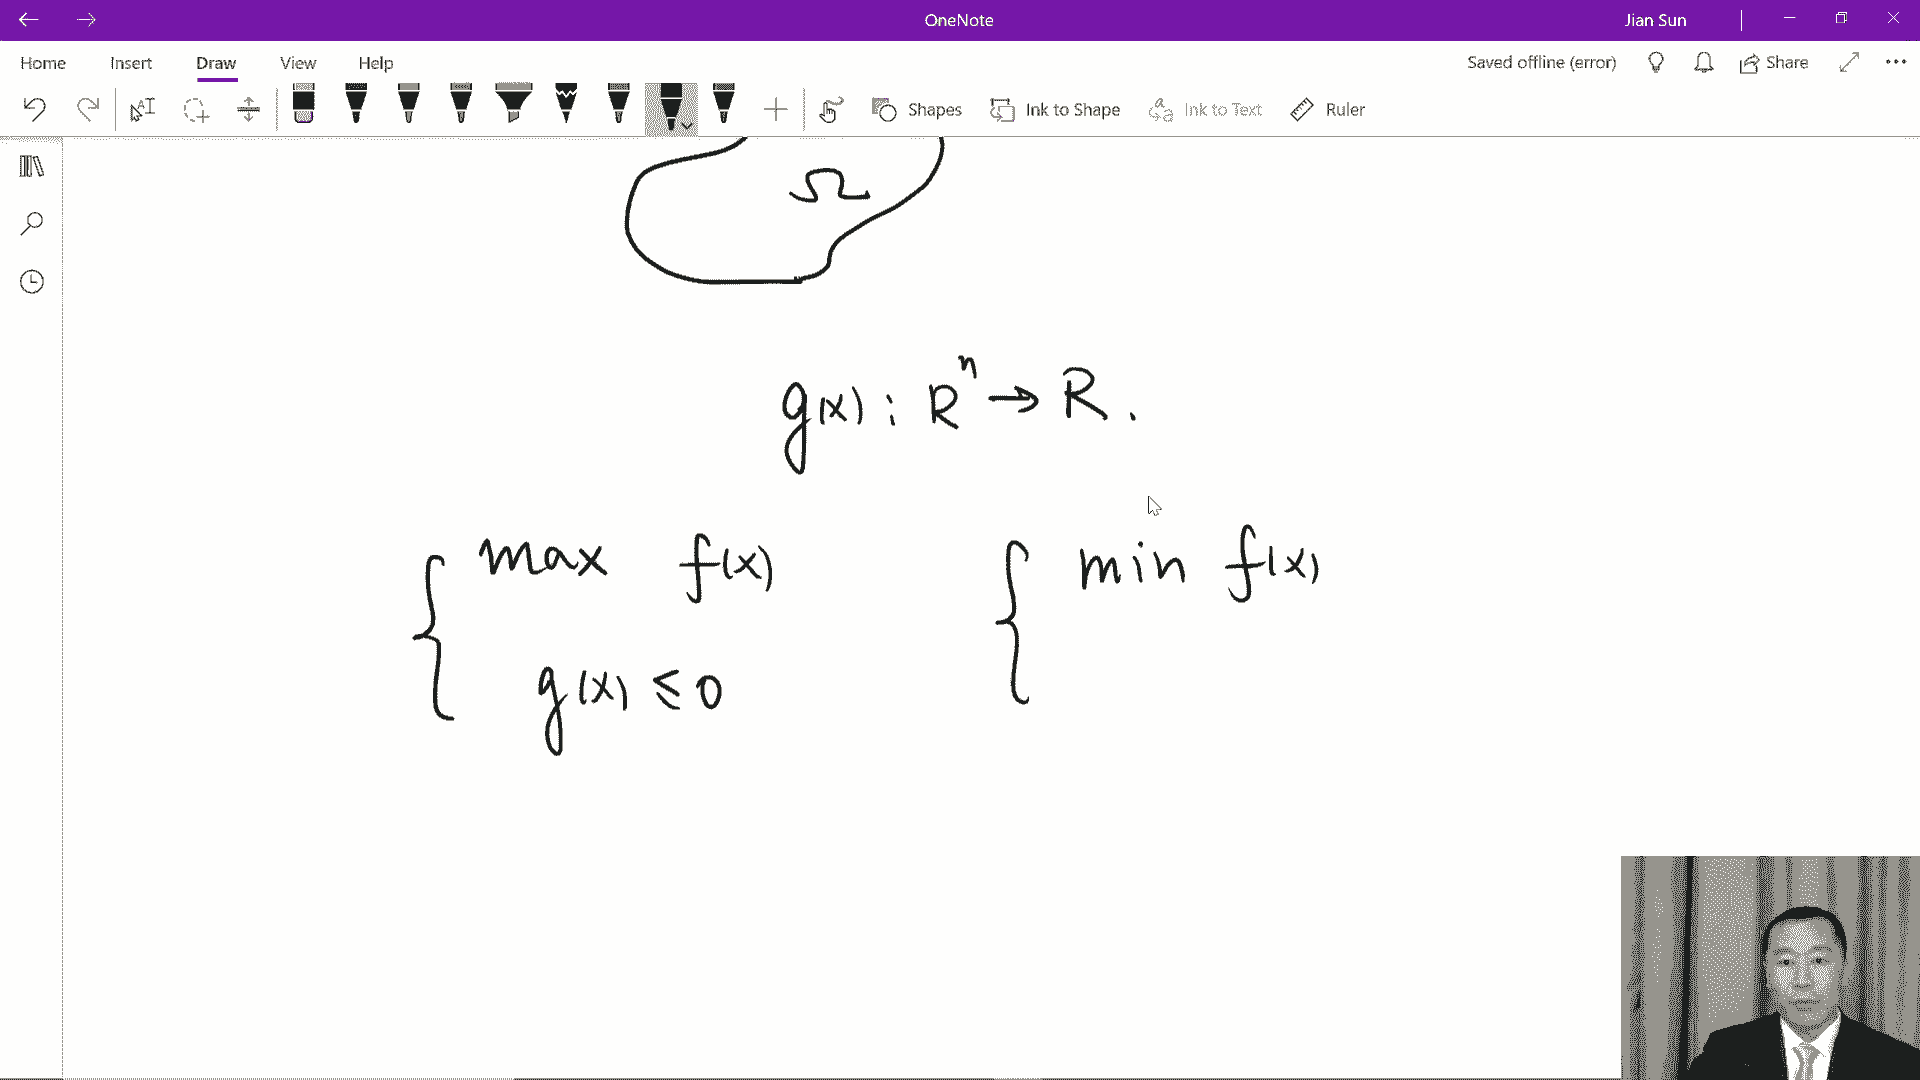 OneNote
Jian Sun
Home Insert Draw View Help
Saved offline (error)
Share
Shapes
Ink to Shape
Ink to Text
Ruler
Ω
g(x) : Rⁿ → R .
{ max f(x)
g(x) ≤ 0
{ min f(x)